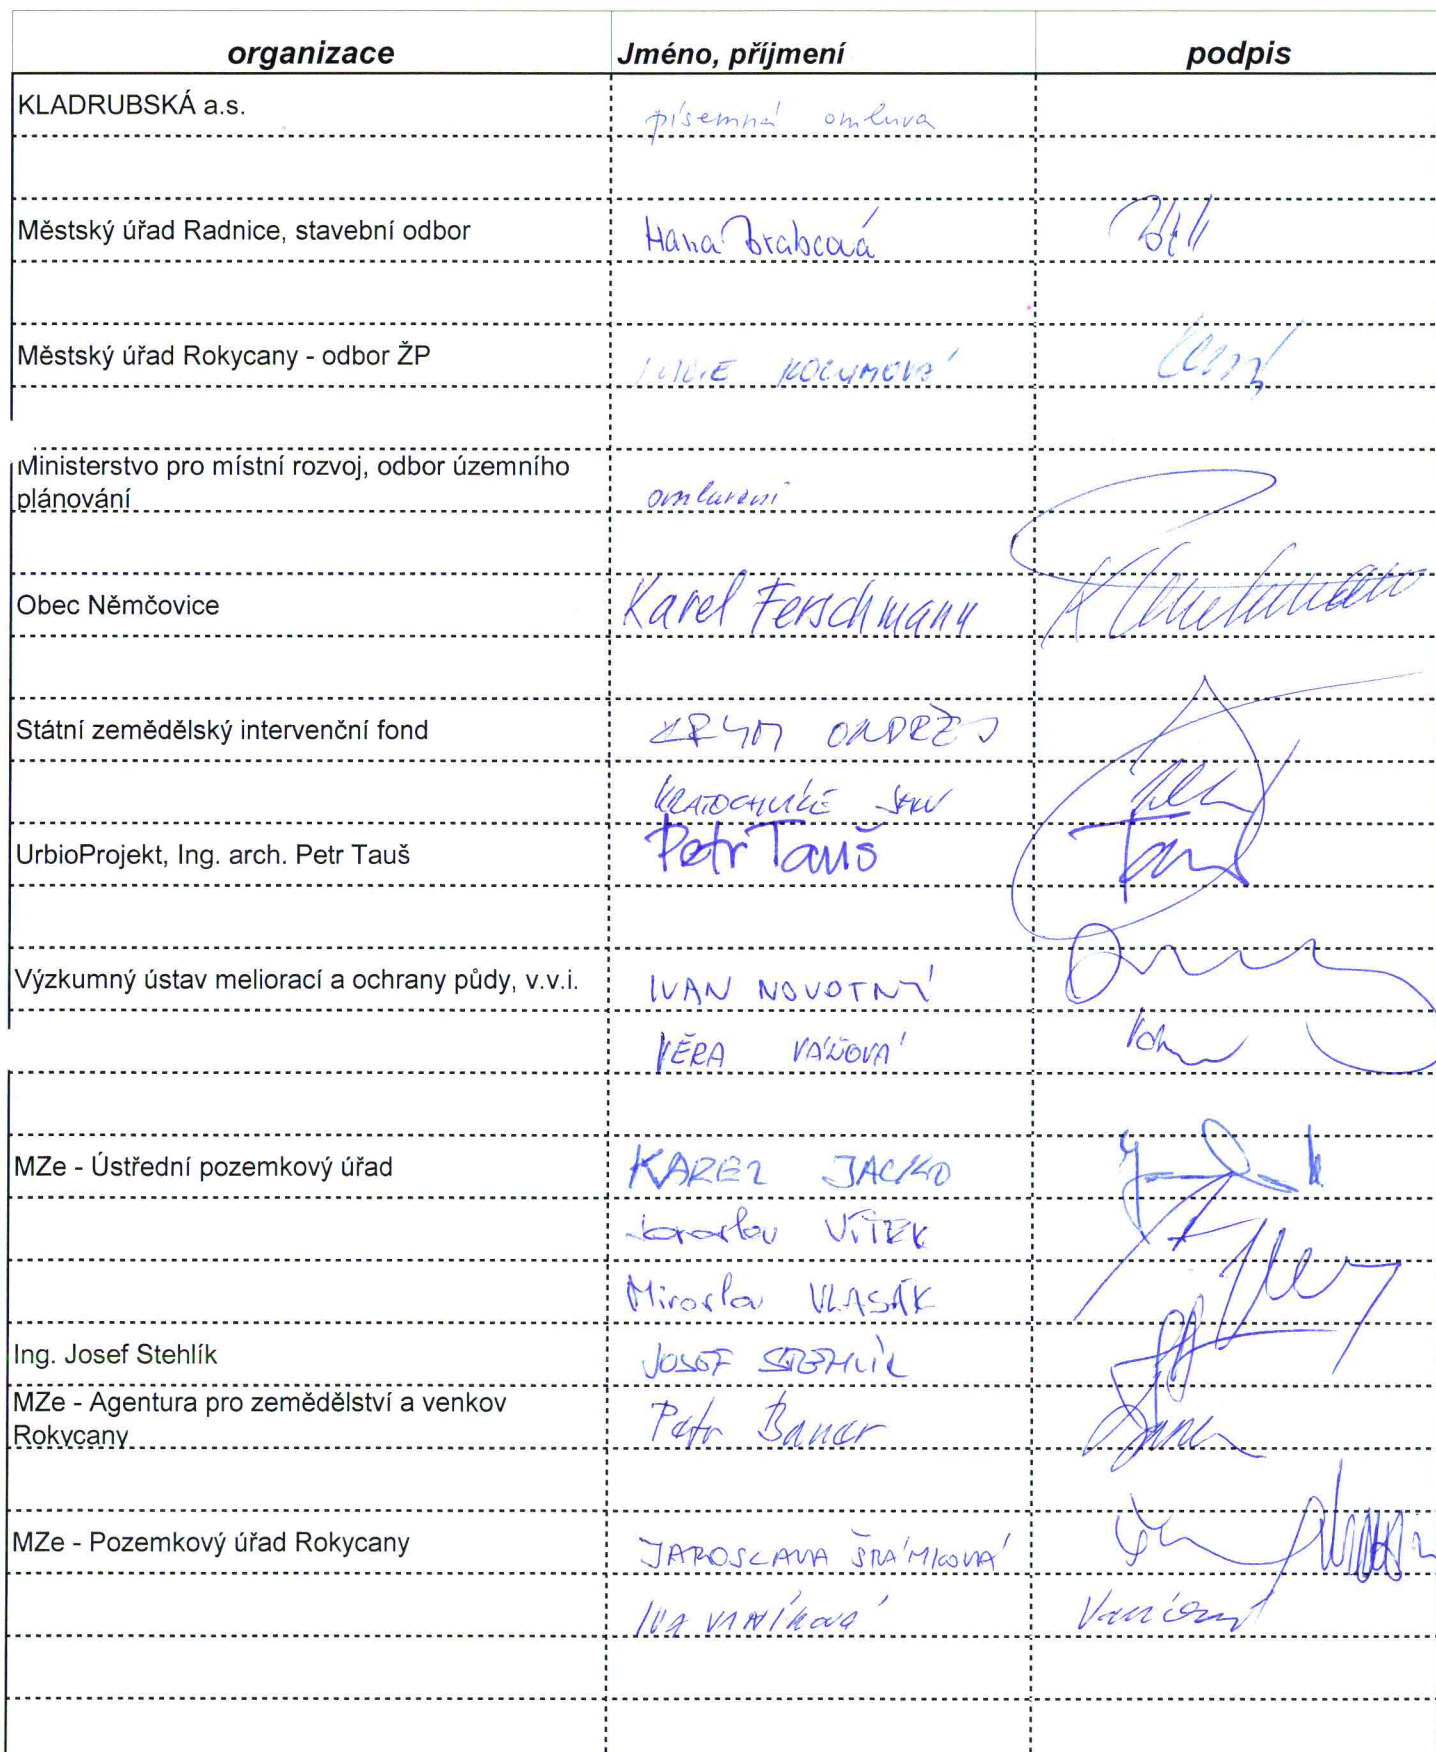 organizace Jméno, příjmení podpis
KLADRUBSKÁ a.s. písemná omluva
Městský úřad Radnice, stavební odbor Hana Brabcová
Městský úřad Rokycany - odbor ŽP
Ministerstvo pro místní rozvoj, odbor územního
plánování omluveni
Obec Němčovice Karel Ferschmann
Státní zemědělský intervenční fond ONDŘEJ
UrbioProjekt, Ing. arch. Petr Tauš Petr Tauš
Výzkumný ústav meliorací a ochrany půdy, v.v.i. IVAN NOVOTNÝ
VĚRA VÁŇOVÁ
MZe - Ústřední pozemkový úřad KAREL JACKO
Jaroslav VÍTEK
Miroslav VLASÁK
Ing. Josef Stehlík JOSEF STEHLÍK
MZe - Agentura pro zemědělství a venkov
Rokycany Petr Bauer
MZe - Pozemkový úřad Rokycany JAROSLAVA ŠRÁMKOVÁ
IVA VANÍKOVÁ